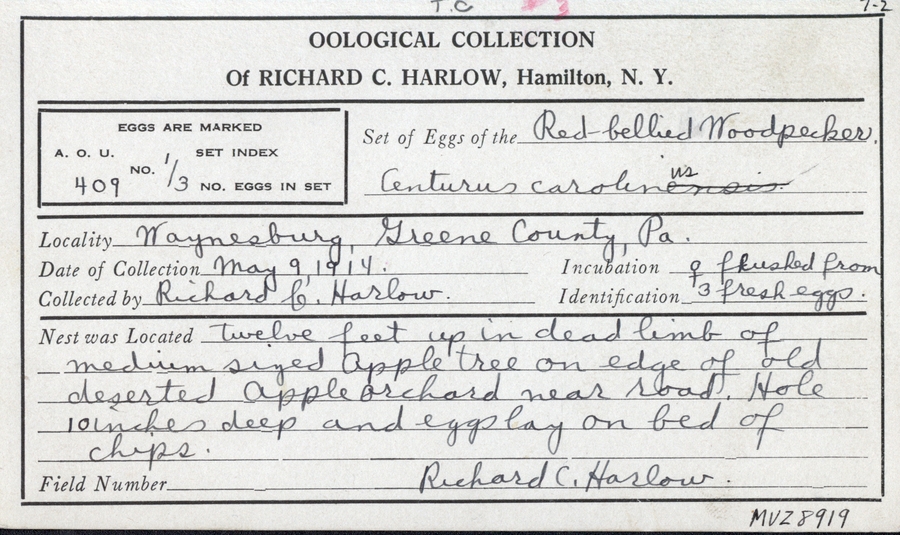 T.C 7-2
OOLOGICAL COLLECTION
Of RICHARD C. HARLOW, Hamilton, N. Y.
EGGS ARE MARKED
A. O. U. NO. 1/3 SET INDEX
409 NO. EGGS IN SET
Set of Eggs of the Red-bellied Woodpecker.
Centurus carolinensis us
Locality Waynesburg, Greene County, Pa.
Date of Collection May 9, 1914. Incubation ♀ flushed from
Collected by Richard C. Harlow. Identification 3 fresh eggs.
Nest was Located twelve feet up in dead limb of
medium sized Apple tree on edge of old
deserted Apple orchard near road. Hole
10 inches deep and eggs lay on bed of
chips.
Field Number Richard C. Harlow.
MVZ 8919